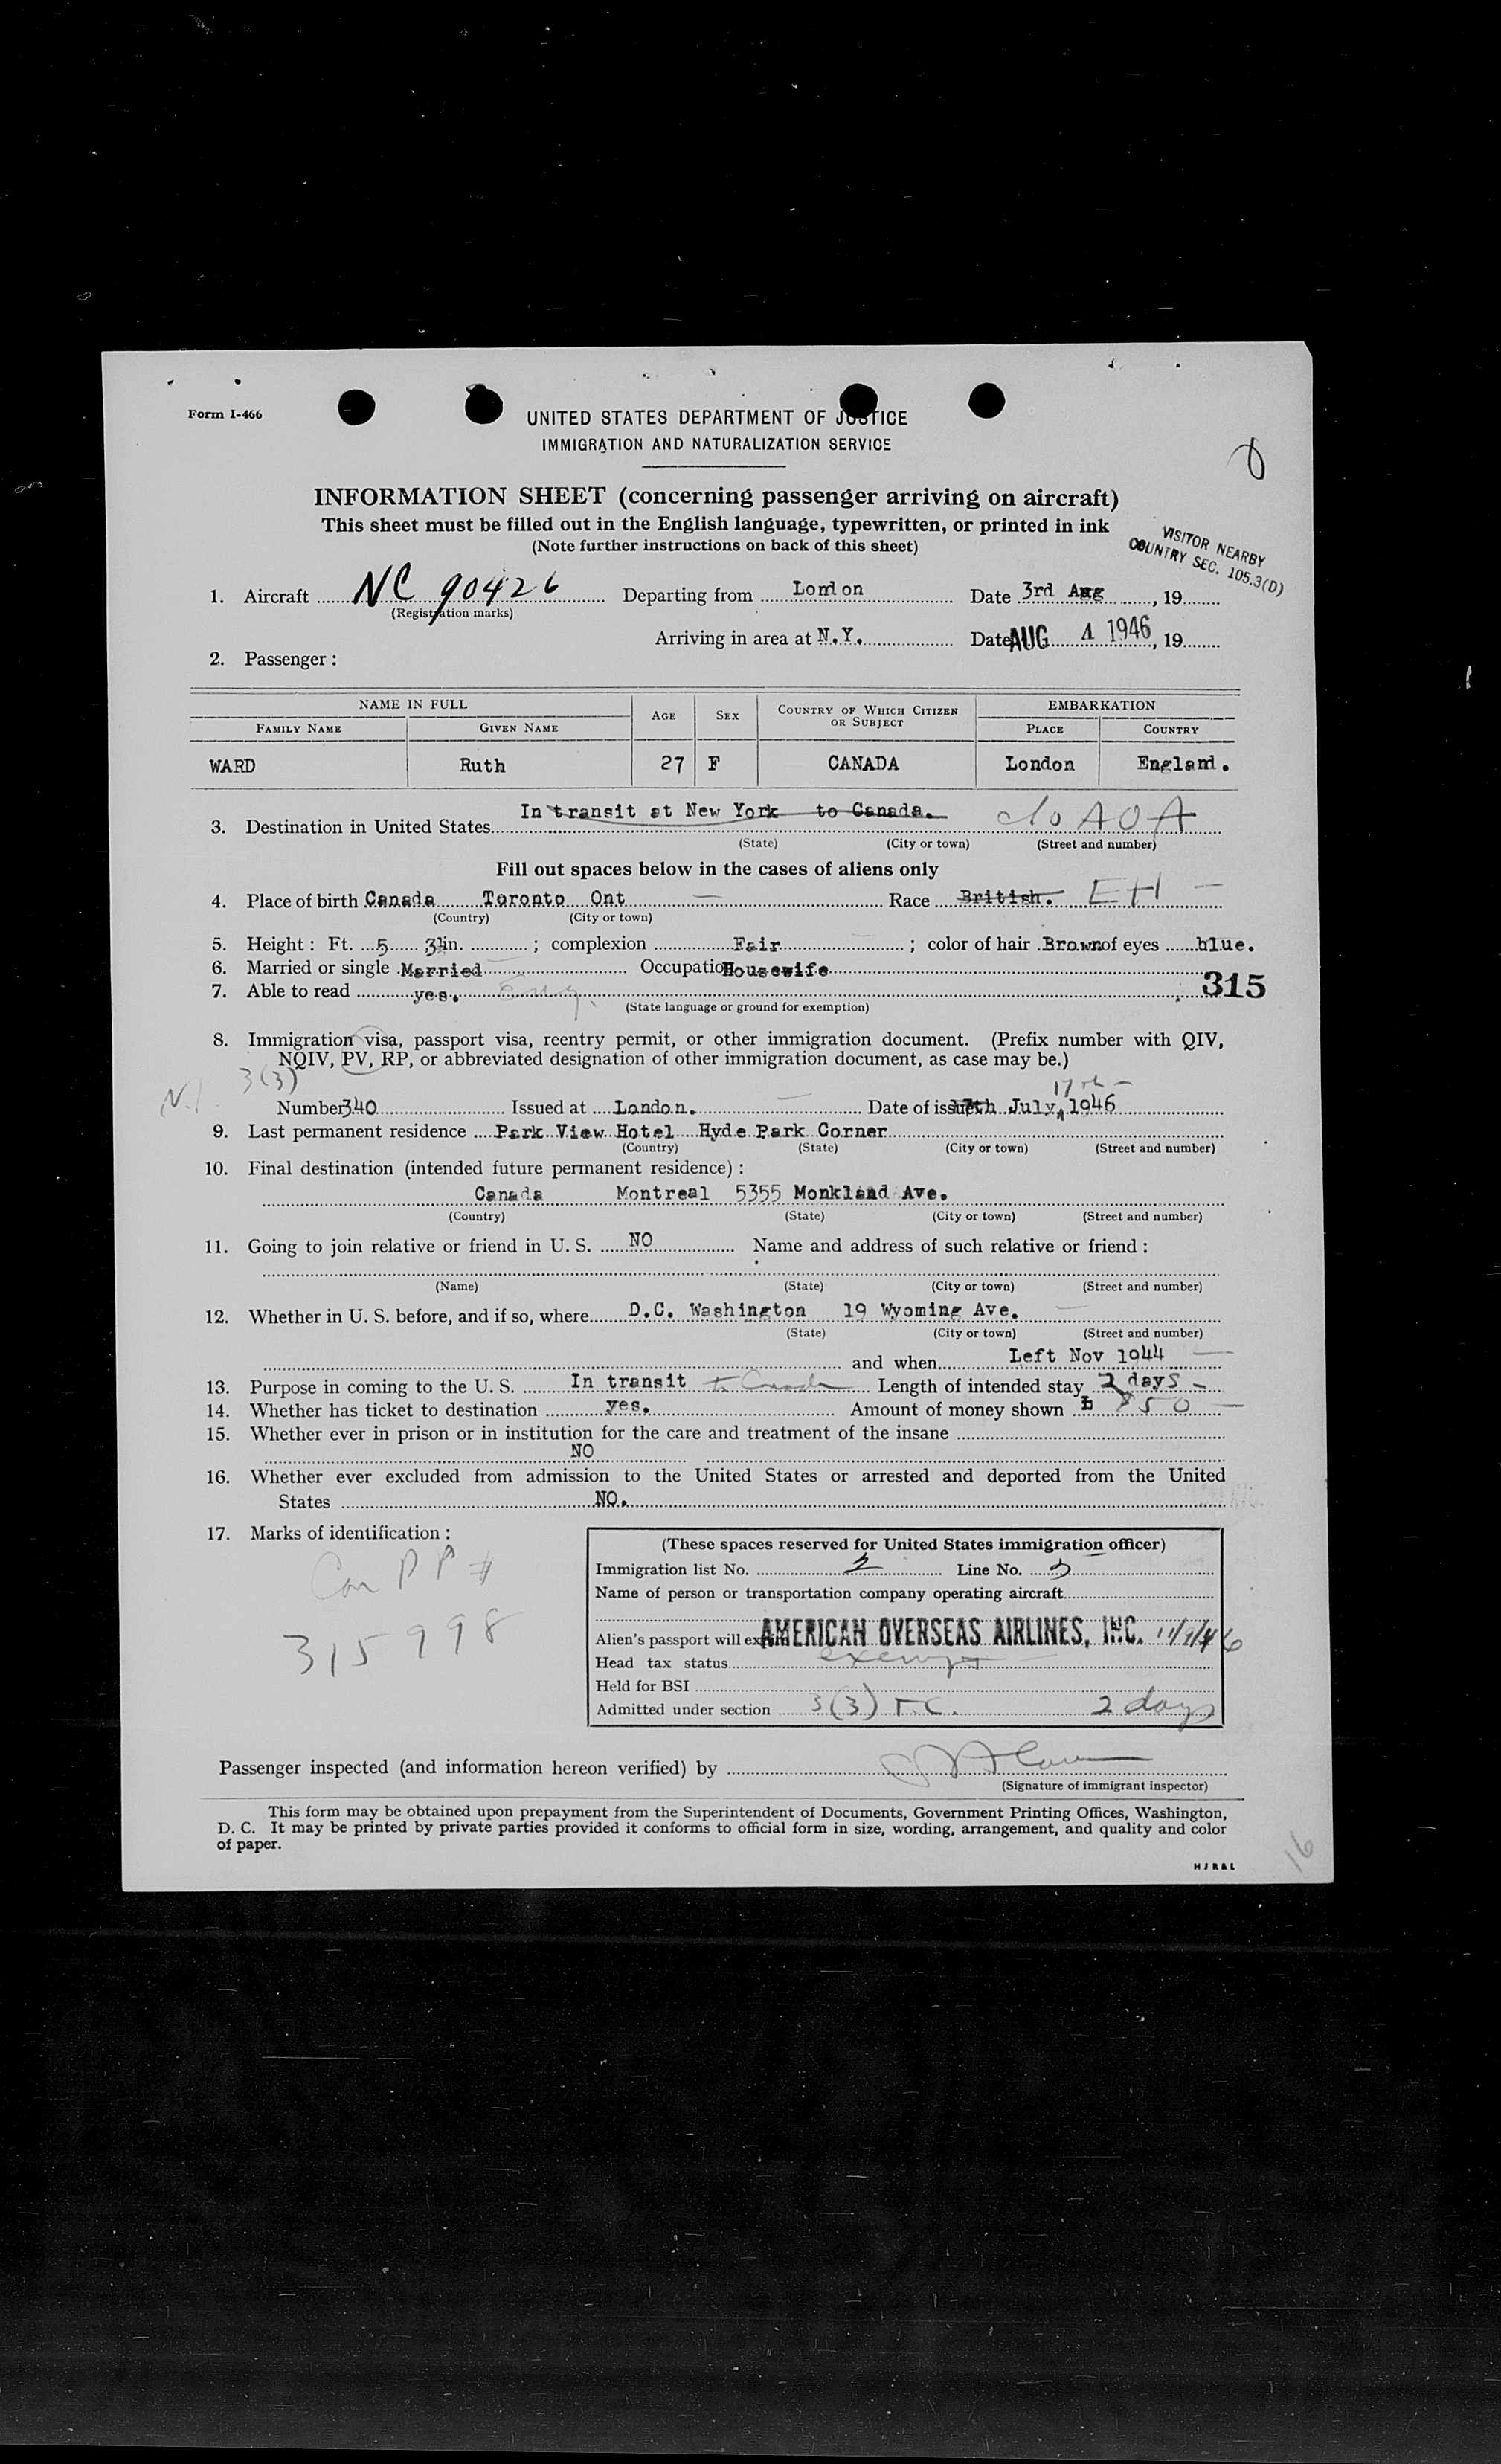 Form I-466
UNITED STATES DEPARTMENT OF JUSTICE
IMMIGRATION AND NATURALIZATION SERVICE
INFORMATION SHEET (concerning passenger arriving on aircraft)
This sheet must be filled out in the English language, typewritten, or printed in ink
(Note further instructions on back of this sheet)
VISITOR NEARBY
COUNTRY SEC. 105.3(D)
1. Aircraft NC 90426 Departing from London Date 3rd Aug, 19
(Registration marks)
Arriving in area at N.Y. Date AUG 4 1946, 19
2. Passenger:
NAME IN FULL AGE SEX COUNTRY OF WHICH CITIZEN OR SUBJECT EMBARKATION
FAMILY NAME GIVEN NAME PLACE COUNTRY
WARD Ruth 27 F CANADA London England.
3. Destination in United States In transit at New York to Canada. c/o AOA
(State) (City or town) (Street and number)
Fill out spaces below in the cases of aliens only
4. Place of birth Canada Toronto Ont Race British. EH
(Country) (City or town)
5. Height: Ft. 5 3½in. ; complexion Fair ; color of hair Brown of eyes blue.
6. Married or single Married Occupation Housewife
315
7. Able to read yes. Eng.
(State language or ground for exemption)
8. Immigration visa, passport visa, reentry permit, or other immigration document. (Prefix number with QIV,
NQIV, PV, RP, or abbreviated designation of other immigration document, as case may be.)
3(3) 17th
Number 340 Issued at London. Date of issue 17th July, 1946
9. Last permanent residence Park View Hotel Hyde Park Corner
(Country) (State) (City or town) (Street and number)
10. Final destination (intended future permanent residence):
Canada Montreal 5355 Monkland Ave.
(Country) (State) (City or town) (Street and number)
11. Going to join relative or friend in U. S. NO Name and address of such relative or friend:
(Name) (State) (City or town) (Street and number)
12. Whether in U. S. before, and if so, where D.C. Washington 19 Wyoming Ave.
(State) (City or town) (Street and number)
and when Left Nov 1944
13. Purpose in coming to the U. S. In transit to Canada Length of intended stay 2 days
14. Whether has ticket to destination yes. Amount of money shown 50
15. Whether ever in prison or in institution for the care and treatment of the insane
NO
16. Whether ever excluded from admission to the United States or arrested and deported from the United
States NO.
17. Marks of identification:
Can PP #
315998
(These spaces reserved for United States immigration officer)
Immigration list No. 2 Line No. 3
Name of person or transportation company operating aircraft
AMERICAN OVERSEAS AIRLINES, INC.
Alien's passport will expire 11/1/46
Head tax status exempt
Held for BSI
Admitted under section 3(3) T.C. 2 days
Passenger inspected (and information hereon verified) by
(Signature of immigrant inspector)
This form may be obtained upon prepayment from the Superintendent of Documents, Government Printing Offices, Washington,
D. C. It may be printed by private parties provided it conforms to official form in size, wording, arrangement, and quality and color
of paper.
HJR&L
16